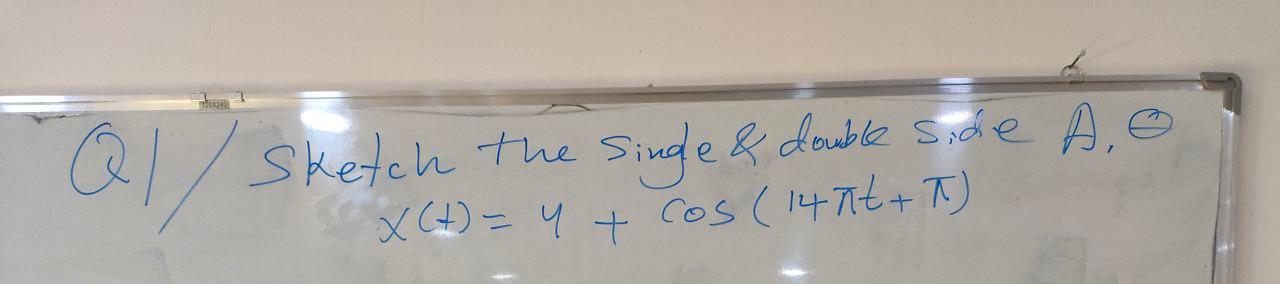 120X240
Q1/ Sketch the Single & double side A, Θ
x(t) = 4 + cos(14πt + π)